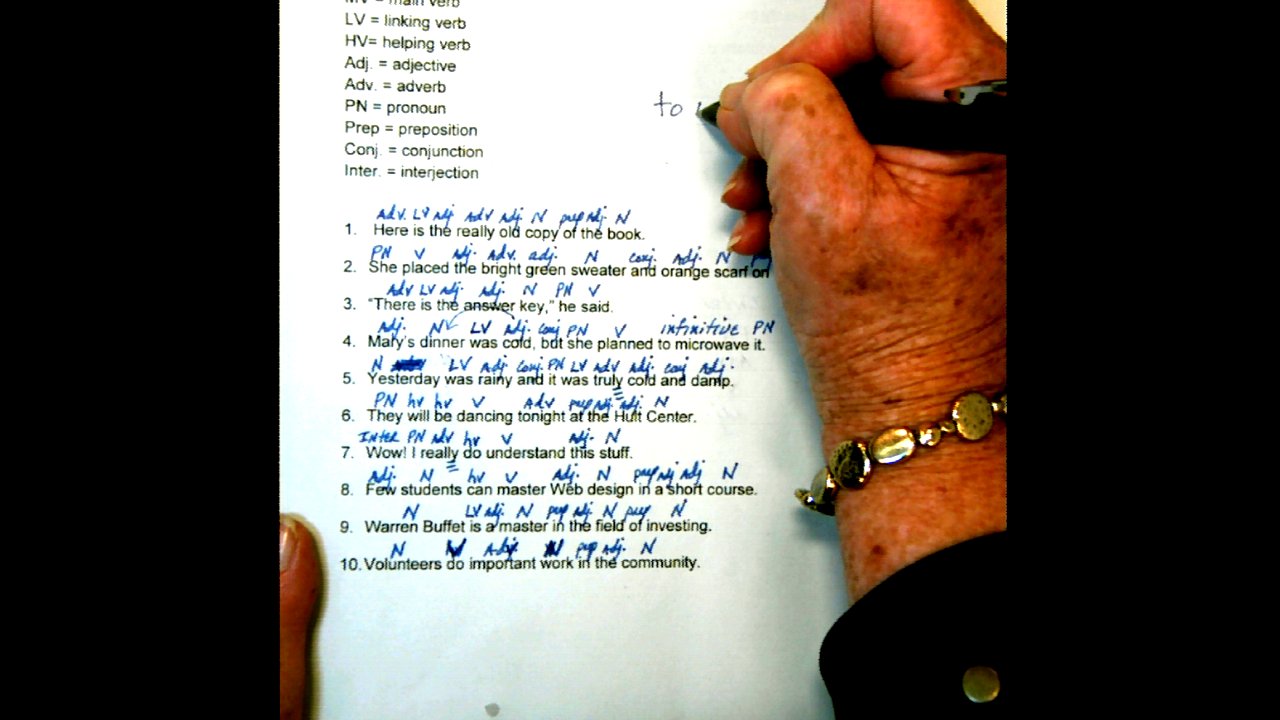 MV = main verb
LV = linking verb
HV= helping verb
Adj. = adjective
Adv. = adverb
PN = pronoun
to
Prep = preposition
Conj. = conjunction
Inter. = interjection
Adv. LV Adj. Adv Adj. N prep Adj. N
1. Here is the really old copy of the book.
PN V Adj. Adv. adj. N conj. Adj. N
2. She placed the bright green sweater and orange scarf on
Adv LV Adj. Adj. N PN V
3. "There is the answer key," he said.
Adj. N LV Adj. conj PN V infinitive PN
4. Mary's dinner was cold, but she planned to microwave it.
N LV Adj conj. PN LV Adv Adj. conj Adj.
5. Yesterday was rainy and it was truly cold and damp.
PN hv hv V Adv prep adj. adj. N
6. They will be dancing tonight at the Hult Center.
Inter PN Adv hv V Adj. N
7. Wow! I really do understand this stuff.
Adj. N hv V Adj. N prep adj Adj N
8. Few students can master Web design in a short course.
N LV Adj. N prep adj. N prep N
9. Warren Buffet is a master in the field of investing.
N V Adj. N prep adj. N
10. Volunteers do important work in the community.